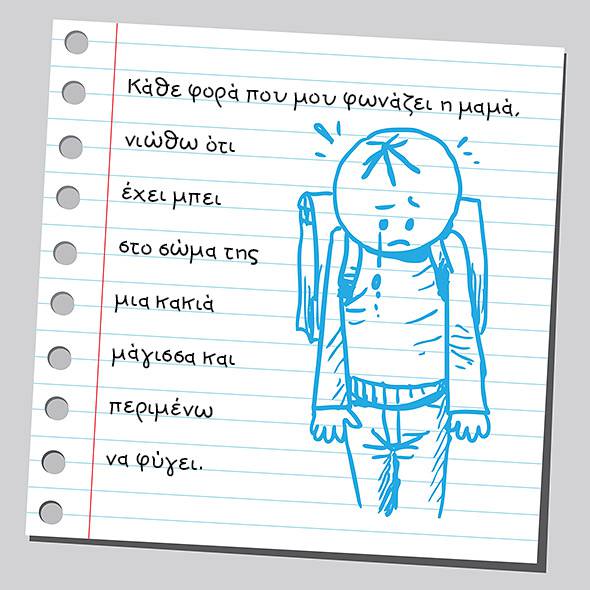 Κάθε φορά που μου φωνάζει η μαμά,
νιώθω ότι
έχει μπει
στο σώμα της
μια κακιά
μάγισσα και
περιμένω
να φύγει.